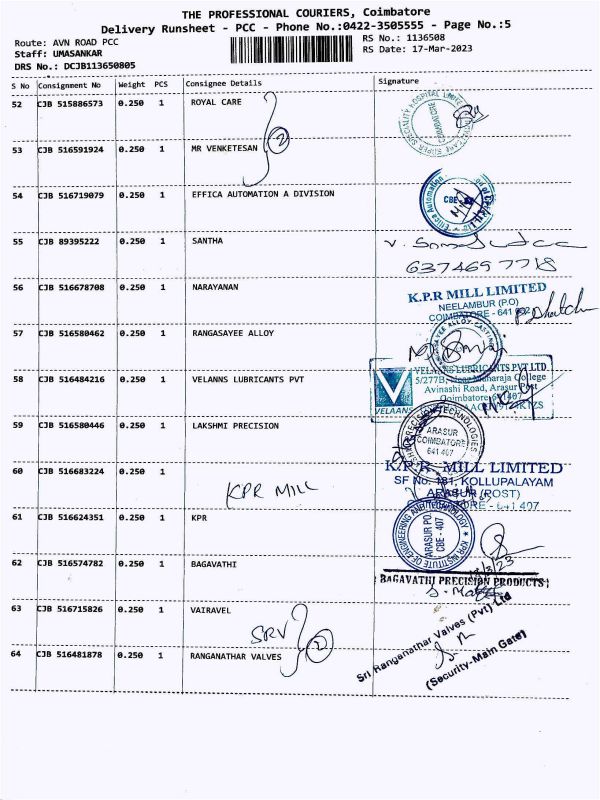 THE PROFESSIONAL COURIERS, Coimbatore
Delivery Runsheet - PCC - Phone No.:0422-3505555 - Page No.:5
Route: AVN ROAD PCC
RS No.: 1136508
Staff: UMASANKAR
RS Date: 17-Mar-2023
DRS No.: DCJB113650805
S No Consignment No Weight PCS Consignee Details Signature
52 CJB 515886573 0.250 1 ROYAL CARE
SUPER SPECIALITY HOSPITAL LIMITED
COIMBATORE
53 CJB 516591924 0.250 1 MR VENKETESAN
2
54 CJB 516719079 0.250 1 EFFICA AUTOMATION A DIVISION
Effica Automation
CBE
55 CJB 89395222 0.250 1 SANTHA
V.
6374697718
56 CJB 516678708 0.250 1 NARAYANAN
K.P.R MILL LIMITED
NEELAMBUR (P.O)
COIMBATORE - 641
57 CJB 516580462 0.250 1 RANGASAYEE ALLOY
RANGASAYEE ALLOY CASTINGS
58 CJB 516484216 0.250 1 VELANNS LUBRICANTS PVT
VELAANS
VELAANS LUBRICANTS PVT LTD
5/277B, Near Maharaja College
Avinashi Road, Arasur Post
Coimbatore 641407
59 CJB 516580446 0.250 1 LAKSHMI PRECISION
PRECISION TECHNOLOGIES
ARASUR
COIMBATORE
641 407
60 CJB 516683224 0.250 1
KPR MILL
K.P.R. MILL LIMITED
SF No. 181, KOLLUPALAYAM
ARASUR (POST)
641 407
61 CJB 516624351 0.250 1 KPR
KPR INSTITUTE OF ENGINEERING AND TECHNOLOGY
ARASUR PO.
CBE - 407
62 CJB 516574782 0.250 1 BAGAVATHI
BAGAVATHI PRECISION PRODUCTS
63 CJB 516715826 0.250 1 VAIRAVEL
SRV
2
64 CJB 516481878 0.250 1 RANGANATHAR VALVES
Sri Ranganathar Valves (Pvt) Ltd
(Security-Main Gate)